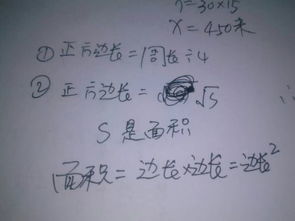 7=30×15
X=450米
① 正方边长=周长÷4
② 正方边长=√S
S是面积
面积=边长×边长=边长²